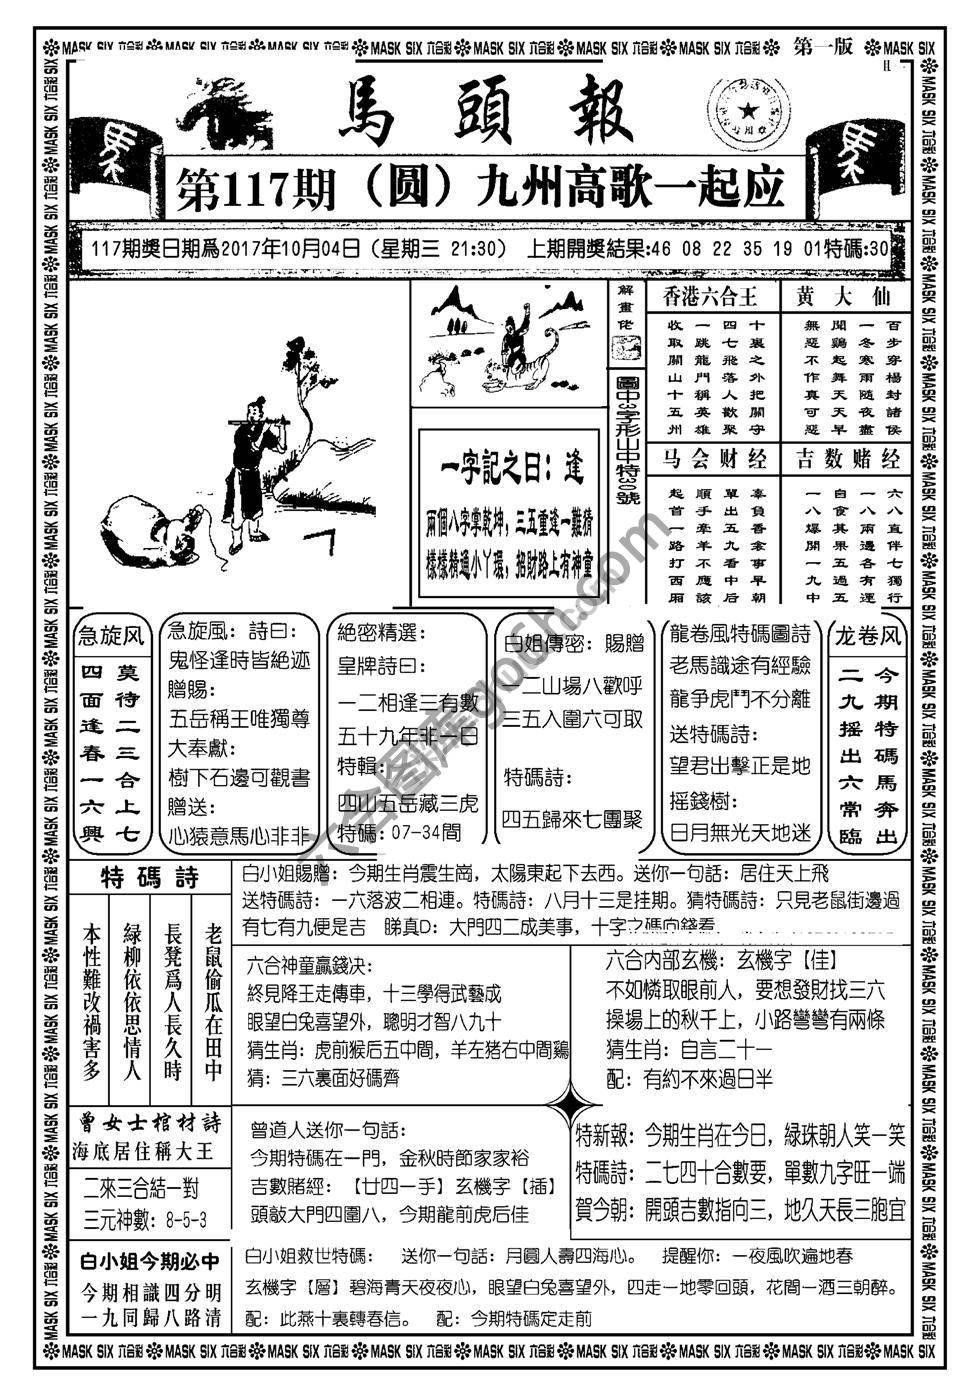 MASK SIX 六合彩 MASK SIX 六合彩 MASK SIX 六合彩 MASK SIX 六合彩 MASK SIX 六合彩 MASK SIX 六合彩 MASK SIX 六合彩 第一版 MASK SIX
馬頭報
第117期（圆）九州高歌一起应
117期獎日期爲2017年10月04日（星期三 21:30） 上期開獎結果:46 08 22 35 19 01特碼:30
解畫佬
圖中3字形山中特30號
香港六合王
十裏之外把關守
四七飛落人歡聚
一跳龍門稱英雄
收取關山十五州
黄大仙
百步穿楊封諸侯
一冬寒雨隨夜盡
聞鷄起舞天天早
無惡不作真可惡
马会财经
辜負香衾事早朝
單出五九看中后
順手牽羊不應該
起首一路打西厢
吉数赌经
六八直伴七獨行
一八兩邊各有運
自食其果五過五
一八爆開一九中
一字記之曰：逢
兩個八字掌乾坤，三五重逢一難猜
樣樣精通小丫環，招財路上有神童
急旋风
莫待二三合上七
四面逢春一六興
急旋風：詩曰：
鬼怪逢時皆絶迹
贈賜：
五岳稱王唯獨尊
大奉獻：
樹下石邊可觀書
贈送：
心猿意馬心非非
絶密精選：
皇牌詩曰：
一二相逢三有數
五十九年非一日
特輯：
四山五岳藏三虎
特碼：07-34間
白姐傳密：賜贈
一二山場八歡呼
三五入圍六可取
特碼詩：
四五歸來七團聚
龍卷風特碼圖詩
老馬識途有經驗
龍争虎鬥不分離
送特碼詩：
望君出擊正是地
摇錢樹：
日月無光天地迷
龙卷风
今期特碼馬奔出
二九摇出六常臨
特碼詩
老鼠偷瓜在田中
長凳爲人長久時
緑柳依依思情人
本性難改禍害多
白小姐賜贈：今期生肖震生崗，太陽東起下去西。送你一句話：居住天上飛
送特碼詩：一六落波二相連。特碼詩：八月十三是挂期。猜特碼詩：只見老鼠街邊過
有七有九便是吉 睇真D：大門四二成美事，十字之碼向錢看
六合神童贏錢决：
終見降王走傳車，十三學得武藝成
眼望白兔喜望外，聰明才智八九十
猜生肖：虎前猴后五中間，羊左猪右中間鷄
猜：三六裏面好碼齊
六合内部玄機：玄機字【佳】
不如憐取眼前人，要想發財找三六
操場上的秋千上，小路彎彎有兩條
猜生肖：自言二十一
配：有約不來過日半
曾女士棺材詩
海底居住稱大王
二來三合結一對
三元神數：8-5-3
曾道人送你一句話：
今期特碼在一門，金秋時節家家裕
吉數賭經：【廿四一手】玄機字【插】
頭敲大門四圍八，今期龍前虎后佳
特新報：今期生肖在今日，緑珠朝人笑一笑
特碼詩：二七四十合數要，單數九字旺一端
賀今朝：開頭吉數指向三，地久天長三胞宜
白小姐今期必中
今期相識四分明
一九同歸八路清
白小姐救世特碼： 送你一句話：月圓人壽四海心。 提醒你：一夜風吹遍地春
玄機字【層】碧海青天夜夜心，眼望白兔喜望外，四走一地零回頭，花間一酒三朝醉。
配：此燕十裏轉春信。 配：今期特碼定走前
MASK SIX 六合彩 MASK SIX 六合彩 MASK SIX 六合彩 MASK SIX 六合彩 MASK SIX 六合彩 MASK SIX 六合彩 MASK SIX 六合彩 MASK SIX 六合彩 MASK SIX